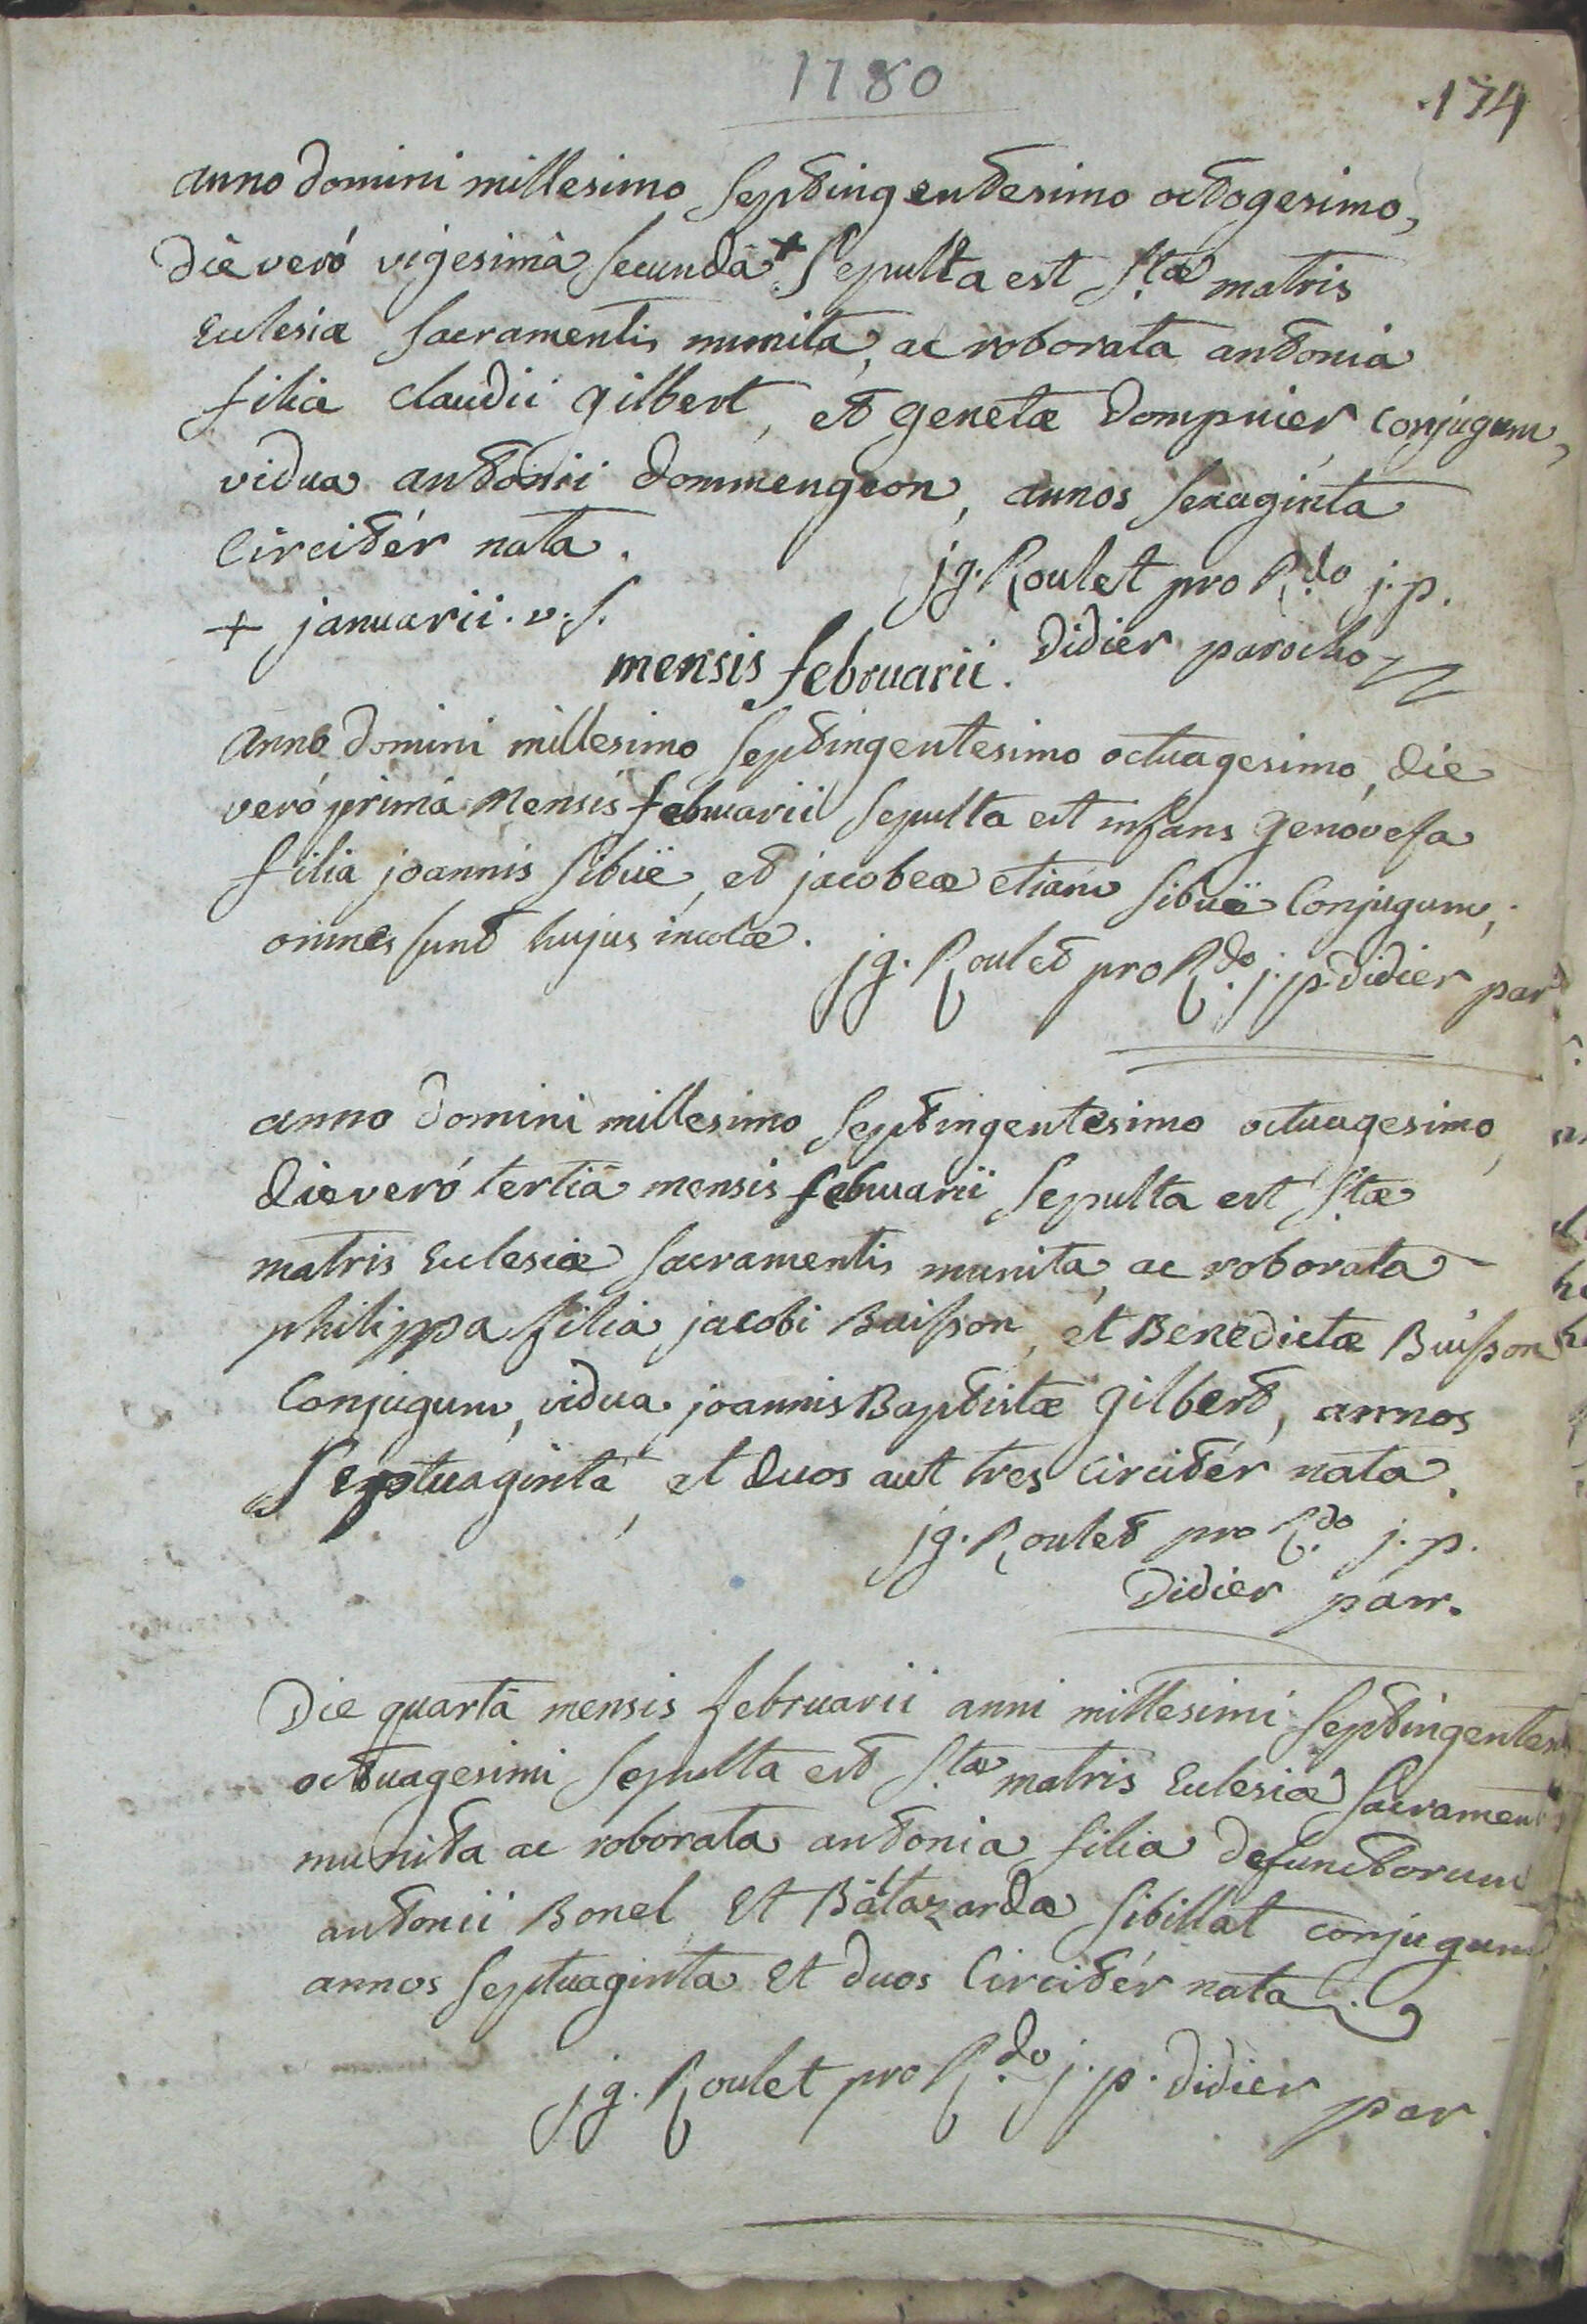 1780
174
anno domini millesimo septingentesimo octogesimo,
die veró vigesimâ secundâ + sepulta est Stæ matris
Eclesiæ sacramentis munita, ac roborata antonia
filia claudii gilbert, et genetæ dompnier conjugum,
vidua antonii dommengeon, annos sexaginta
Circitér nata.
jg. Roulet pro Rdo j. p.
+ januarii. v. s.
Didier parocho
mensis februarii.
anno domini millesimo septingentesimo octuagesimo, die
veró primâ mensis februarii sepulta est infans genovefa
filia joannis sibuë, et jacobeæ etiam sibuë Conjugum,
omnes sunt hujus incolæ.
jg. Roulet pro Rdo j. p. didier par
anno domini millesimo septingentesimo octuagesimo,
die veró tertiâ mensis februarii sepulta est Stæ
matris Eclesiæ sacramentis munita, ac roborata
philippa filia jacobi Buisson, et Benedictæ Buisson
Conjugum, vidua joannis Baptistæ gilbert, annos
septuaginta, et duos aut tres circitér nata.
jg. Roulet pro Rdo j. p.
Didier parr.
Die quartâ mensis februarii anni millesimi septingentes
octuagesimi sepulta est Stæ matris Eclesiæ sacrament
munita ac roborata antonia filia defunctorum
antonii Bonel, Et Batazardæ sibillat conjugum
annos septuaginta Et duos Circitér nata.
jg. Roulet pro Rdo j. p. didier par.